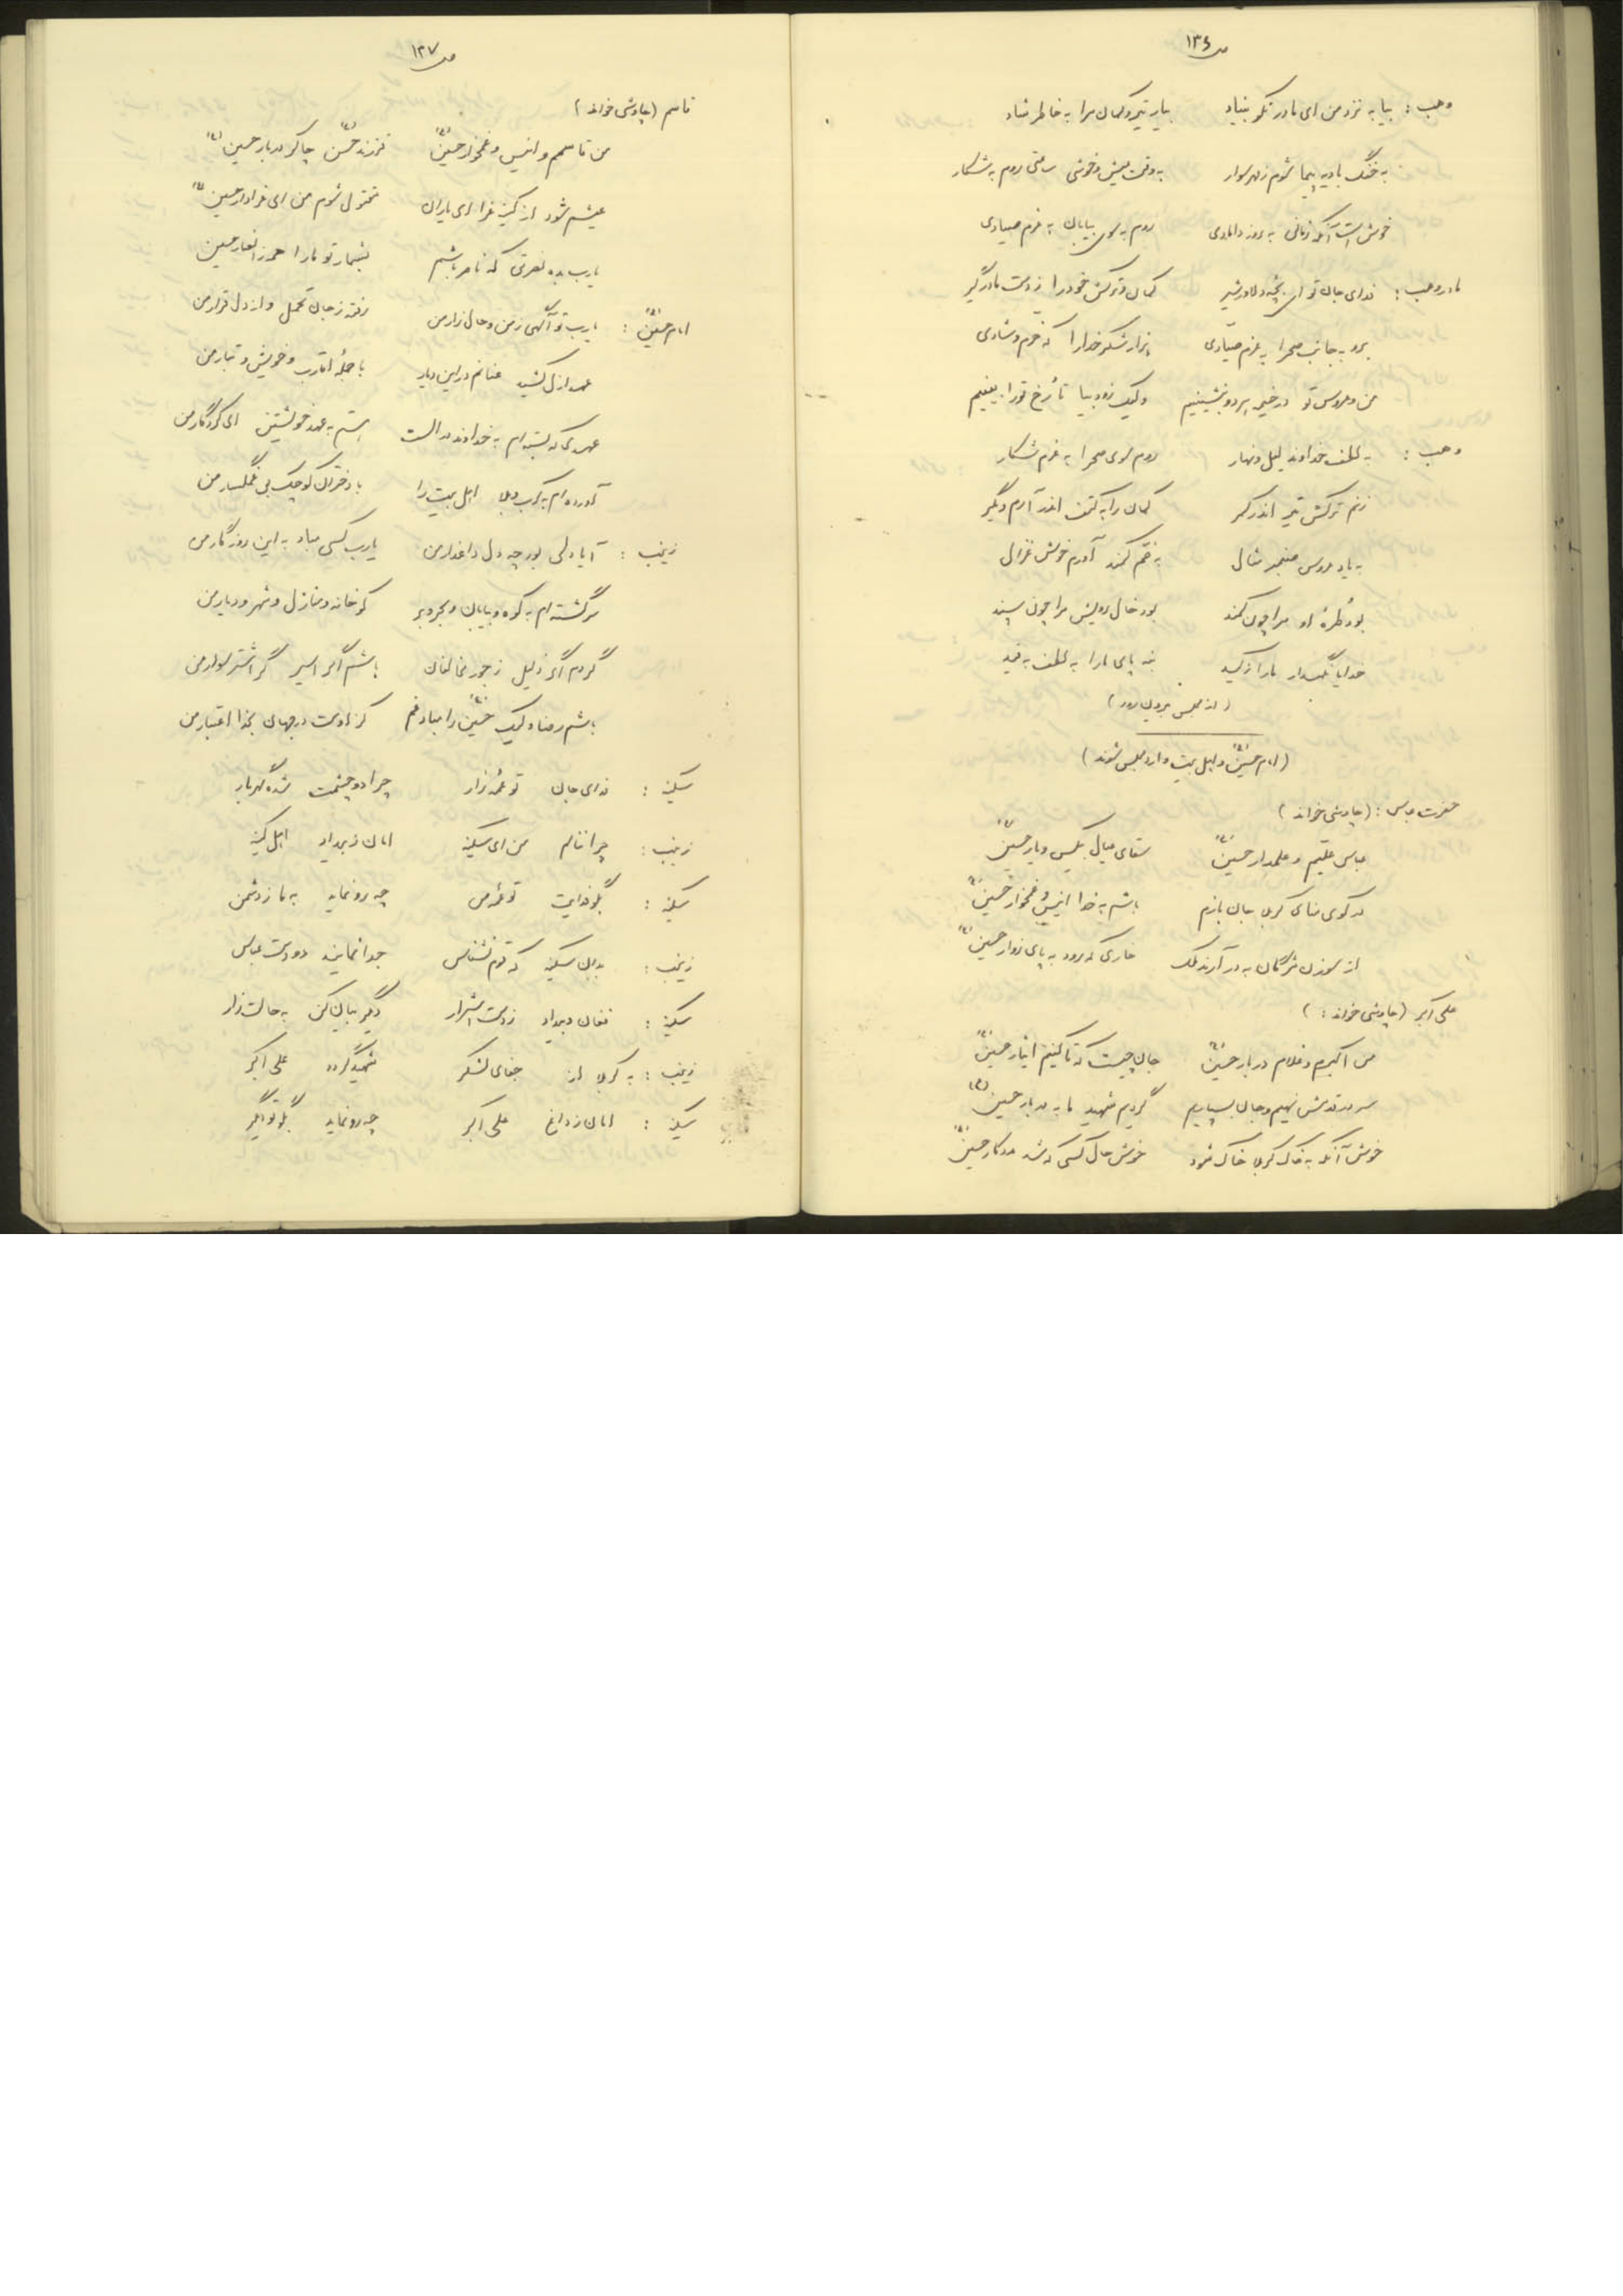 ص ۱۳۶
وهب : بیا به نزد من ای مادر نکو بنیاد بیار تیر و کمان مرا به خاطر شاد
به خنگ بادیه پیما شوم زمهر سوار به وقت عیش و خوشی ساعتی روم به شکار
خوش است آنکه زمانی به روز دامادی روم به سوی بیابان به عزم صیادی
مادر وهب : فدای جان تو ای بچه دلاور شیر کمان و ترکش خود را ز دست مادر گیر
برو به جانب صحرا به عزم صیادی هزار شکر خدا را که خرم و شادی
من و عروس تو در خیمه هر دو بنشینیم ولیک زود بیا تا رخ تو را بینیم
وهب : به لطف خداوند لیل و نهار روم سوی صحرا به عزم شکار
زنم ترکش تیر اندر کمر کمان را به کتف اندر آرم دگر
به یاد عروس صنوبر مثال به خم کمند آورم خوش غزال
بود طره او مرا چون کمند بود خال رویش مرا چون سپند
خدایا نگهدار ما را ز کید بنه پای ما را به لطف به قید
(از مجلس بیرون رود)
(امام حسین(ع) و اهل بیت وارد مجلس شوند)
حضرت عباس : (چاوشی خواند)
عباس علیم و علمدار حسین(ع) سقای عیال بیکس و یار حسین(ع)
در کوی منای کربلا جان بازم باشم به خدا انیس و غمخوار حسین(ع)
از سوزن مژگان به در آرند ملک خاری که رود به پای زوار حسین(ع)
علی اکبر (چاوشی خواند : )
من اکبرم و غلام دربار حسین(ع) جان چیست که تا کنیم ایثار حسین(ع)
سر در قدمش نهیم و جان بسپاریم گردیم شهید ما به دربار حسین(ع)
خوش آنکه به خاک کربلا خاک شود خوش حال کسی که شد مددکار حسین(ع)
ص ۱۳۷
قاسم (چاوشی خواند)
من قاسمم و انیس و غمخوار حسین(ع) فرزند حسن چاکر دربار حسین(ع)
عیشم شود از کینه عزا ای یاران مقتول شوم من ای عزادار حسین(ع)
یارب بده نصرتی که ناصر باشم بشمار تو ما را همه ز انصار حسین
امام حسین(ع) : یارب تو آگهی ز من و حال زار من رفته ز جان تحمل و از دل قرار من
عهد ازل کشید عنانم در این دیار با جمله اقارب و خویش و تبار من
عهدی که بسته ام به خداوند در الست هستم به عهد خویشتن ای کردگار من
آورده ام به کرب و بلا اهل بیت را با دختران کوچک بی غمگسار من
زینب : آیا دلی بود چو دل داغدار من یارب کسی مباد به این روزگار من
سرگشته ام به کوه و بیابان و بحر و بر کو خانه و منازل و شهر و دیار من
گردم اگر ذلیل ز جور مخالفان باشم اگر اسیر گر اشتر سوار من
باشم رضا ولیک حسین(ع) را مباد غم کز اوست در جهان بخدا اعتبار من
سکینه : فدای جان تو عمه زار چرا دو چشمت شده گهربار
زینب : چرا ننالم من ای سکینه امان ز بیداد اهل کینه
سکینه : بگو فدایت تو عمه من چه رو نماید به ما ز دشمن
زینب : بدان سکینه که قوم نشناس جدا نمایند دو دست عباس
سکینه : فغان و بیداد ز دست اشرار دگر بیان کن به حالت زار
زینب : به کربلا از جفای لشکر شهید گردد علی اکبر
سکینه : امان ز داغ علی اکبر چه رو نماید بگو تو دیگر